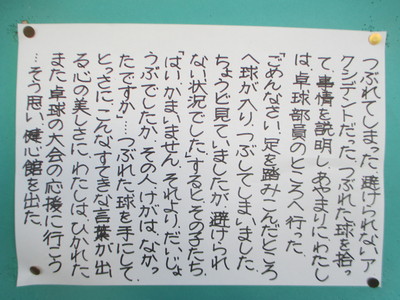 つぶれてしまった。避けられないア
クシデントだった。つぶれた球を拾っ
て、事情を説明し、あやまりにわたし
は卓球部員のところへ行った。
「ごめんなさい。足を踏みこんだところ
へ球が入り、つぶしてしまいました。
ちょうど見ていましたが、避けられ
ない状況でした。」すると、その子たち、
「はい、かまいません。それより、だいじょ
うぶでしたか。その人、けがは、なかっ
たですか」…つぶれた球を手にして
とっさに、こんなすてきな言葉が出
る心の美しさに、わたしは、ひかれた。
また、卓球の大会の応援に行こう
…そう思い、健心館を出た。